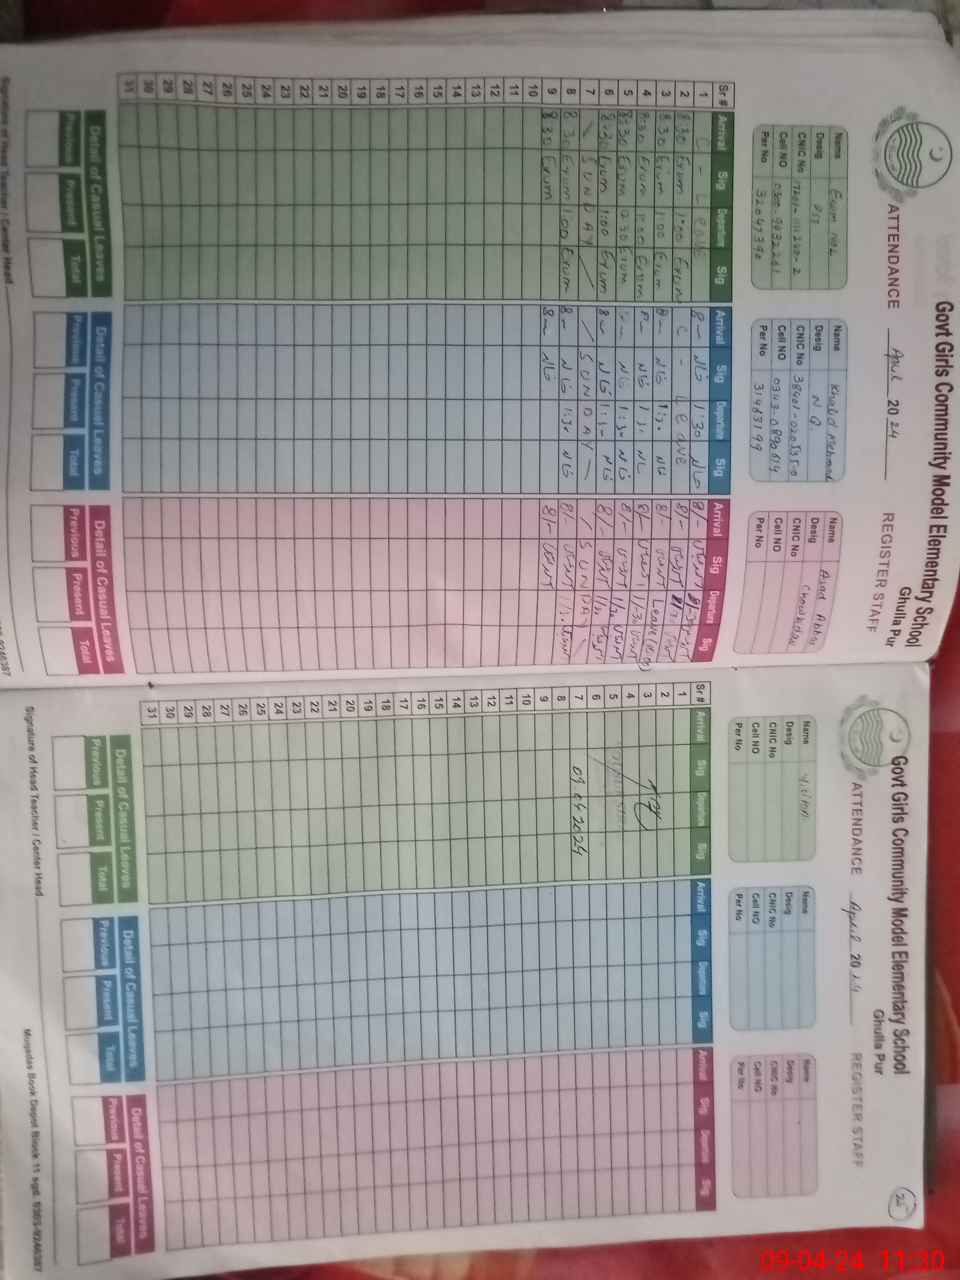 Govt Girls Community Model Elementary School
Ghulla Pur
ATTENDANCE April 2024 REGISTER STAFF
Name
Desig
CNIC No
Cell NO
Per No 32047390
Name Khalid
Desig N Q
CNIC No
Cell NO 0343-0890614
Per No 31483199
Name Asad Abbas
Desig Chowkidar
CNIC No
Cell NO
Per No
Sr # Arrival Sig Departure Sig Arrival Sig Departure Sig Arrival Sig Departure Sig
1 C - Leave 8- NG 1:30 NG 8/-
2 8:30 Erum 1:00 Erum C - Leave 8/-
3 8:30 Erum 1:00 Erum 8- NG 1:3- NG 8/- Leave
4 8:30 Erum 1:00 Erum 8- NG 1:3- NG 8/-
5 8:30 Erum 12:30 Erum 8- NG 1:3- NG 8/-
6 8:30 Erum 1:00 Erum 8- NG 1:3- NG 8/-
7 SUNDAY SUNDAY SUNDAY
8 8:30 Erum 1:00 Erum 8- NG 1:3- NG 8/-
9 8:30 Erum 8- NG 8/-
10
11
12
13
14
15
16
17
18
19
20
21
22
23
24
25
26
27
28
29
30
31
Detail of Casual Leaves Detail of Casual Leaves Detail of Casual Leaves
Previous Present Total Previous Present Total Previous Present Total
Signature of Head Teacher / Center Head
25
Govt Girls Community Model Elementary School
Ghulla Pur
ATTENDANCE April 2024 REGISTER STAFF
Name
Desig
CNIC No
Cell NO
Per No
Name
Desig
CNIC No
Cell NO
Per No
Name
Desig
CNIC No
Cell NO
Per No
Sr # Arrival Sig Departure Sig Arrival Sig Departure Sig Arrival Sig Departure Sig
1
2
3
4
5
6
7 09.04.2024
8
9
10
11
12
13
14
15
16
17
18
19
20
21
22
23
24
25
26
27
28
29
30
31
Detail of Casual Leaves Detail of Casual Leaves Detail of Casual Leaves
Previous Present Total Previous Present Total Previous Present Total
Signature of Head Teacher / Center Head Muqadas Book Depot Block 11 sgd. 0305-9246387
09-04-24 11:30